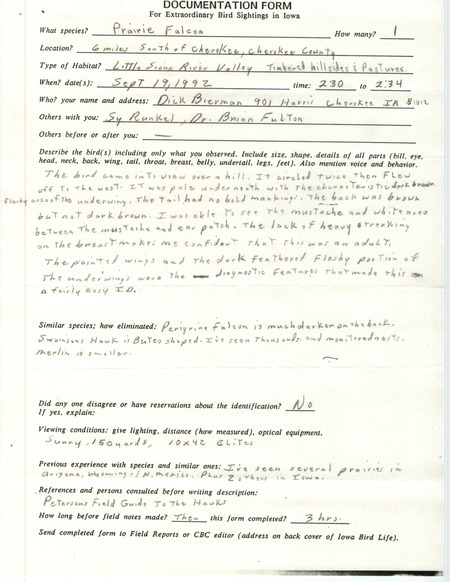 DOCUMENTATION FORM
For Extraordinary Bird Sightings in Iowa
What species? Prairie Falcon How many? 1
Location? 6 miles South of Cherokee, Cherokee County
Type of Habitat? Little Sioux River Valley Timbered hillsides & Pastures
When? date(s): Sept 19, 1992 time: 2:30 to 2:34
Who? your name and address: Dick Bierman 901 Harris Cherokee IA 51012
Others with you: Sy Runkel, Dr. Brian Fulton
Others before or after you: —
Describe the bird(s) including only what you observed. Include size, shape, details of all parts (bill, eye,
head, neck, back, wing, tail, throat, breast, belly, undertail, legs, feet). Also mention voice and behavior.
The bird came into view over a hill. It circled twice then flew
off to the west. It was pale underneath with the characteristic dark brown
fleshy area of the underwing. The tail had no bold markings. The back was brown
but not dark brown. I was able to see the mustache and white area
between the mustache and ear patch. The lack of heavy streaking
on the breast makes me confident that this was an adult.
The pointed wings and the dark feathered fleshy portion of
the underwings were the diagnostic features that made this
a fairly easy ID.
Similar species; how eliminated: Peregrine Falcon is much darker on the back.
Swainsons Hawk is Buteo shaped. I've seen thousands and monitored nests.
merlin is smaller.
Did any one disagree or have reservations about the identification? No
If yes, explain:
Viewing conditions: give lighting, distance (how measured), optical equipment.
Sunny, 150 yards, 10x42 Elites
Previous experience with species and similar ones: I've seen several prairies in
Arizona, Wyoming, N. Mexico. Plus 2 others in Iowa.
References and persons consulted before writing description:
Petersons Field Guide To The Hawks
How long before field notes made? Then this form completed? 3 hrs.
Send completed form to Field Reports or CBC editor (address on back cover of Iowa Bird Life).